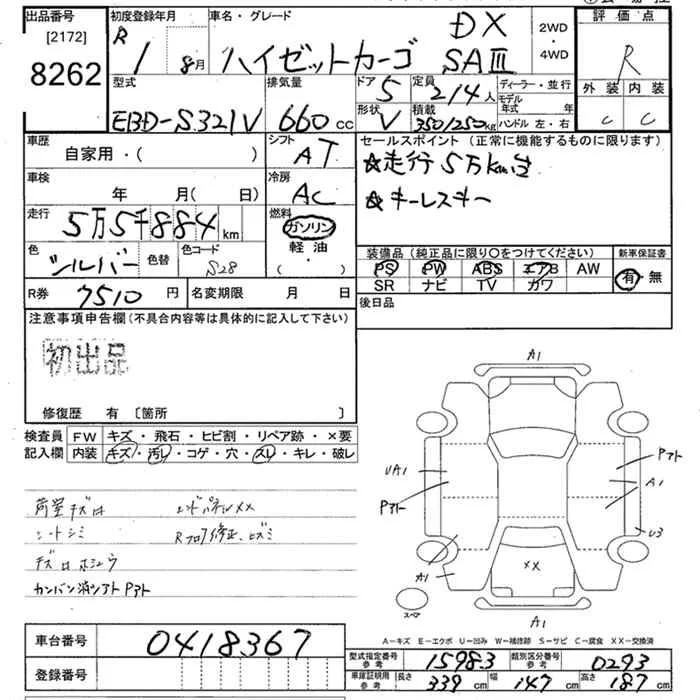 出品番号 初度登録年月 車名・グレード 評価点
[2172] R 1 8月 ハイゼットカーゴ DX SAⅢ 2WD・4WD R
8262
型式 排気量 ドア 5 定員 2/4人 ディーラー・並行 外装 内装
EBD-S321V 660cc 形状 V 積載 350/250kg モデル年式 年 C C
ハンドル 左・右
車歴 シフト セールスポイント (正常に機能するものに限ります)
自家用・( ) AT ☆走行5万km台
車検 冷房 ☆キーレスキー
年 月( 日) AC
走行 5万5千884km 燃料 ガソリン
軽油
( ・ )
色 シルバー 色替 色コード S28 装備品 (純正品に限り〇をつけてください) 新車保証書
PS PW ABS エアB AW 有・無
SR ナビ TV カワ
R券 7510円 名変期限 月 日 後日品
注意事項申告欄 (不具合内容等は具体的に記入して下さい)
初出品
修復歴 有 〔箇所 〕
検査員 FW キズ・飛石・ヒビ割・リペア跡・×要
記入欄 内装 キズ・汚レ・コゲ・穴・スレ・キレ・破レ
荷室キズロ エンドパネルXX
シートシミ Rフロア修正、ヒズミ
キズロホシュウ
カンバン消シアト Pアト
A1
UA1 Pアト
Pアト A1
U3
A1 XX
スペア A1
A-キズ E-エクボ U-凹み W-補修跡 S-サビ C-腐食 XX-交換済
車台番号 0418367 型式指定番号 参考 15983 類別区分番号 参考 0293
登録番号 車庫証明用 参考 長さ 339cm 幅 147cm 高さ 187cm